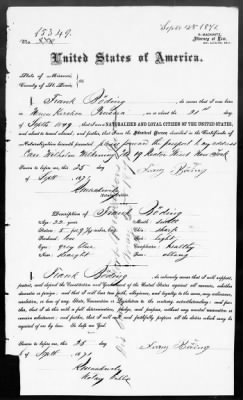 15349.
Sept 25th 1872
S. MACKWITZ,
Attorney at Law,
United States of America.
State of Missouri,
County of St. Louis
I Frank Böding, do swear that I was born
in Prussia on the 21st day
of Sept 1849, that I am a NATURALIZED AND LOYAL CITIZEN OF THE UNITED STATES,
and about to travel abroad; and further, that I am the Identical Person described in the Certificate of
Naturalization herewith presented. please forward the passport to my address
Care Nicholas 49 New York
Sworn to before me this 25 Franz Böding
day of Sept 187
Description of Frank Böding
Age: 22 years
Stature: 5
Forehead: low
Eyes: grey blue
Nose: straight
Mouth:
Chin: sharp
Hair: light
Complexion: healthy
Face: oblong
I Frank Böding, do solemnly swear that I will support,
protect, and defend the Constitution and Government of the United States against all enemies, whether
domestic or foreign; and that I will bear true faith, allegiance, and loyalty to the same, any ordinance,
resolution, or law of any State, Convention or Legislature to the contrary notwithstanding; and further,
that I do this with a full determination, pledge, and purpose, without any mental reservation or
evasion whatsoever; and further, that I will well and faithfully perform all the duties which may be
required of me by law. So help me God.
Sworn to before me this 25 Franz Böding
day of Sept 187
Notary Public